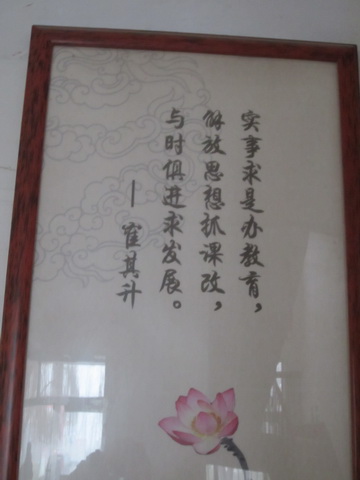 实事求是办教育，
解放思想抓课改，
与时俱进求发展。
——崔其升